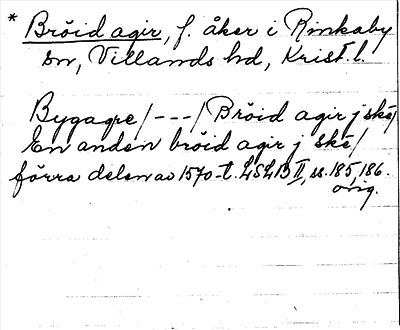 * Bröid agir, f. åker i Rinkaby
sn, Villands hd, Krist. l.
Bygagre /---/ Bröid agir j ske /
En anden bröid agir j ske /
förra delen av 1570-t. LSLB II, ss. 185, 186.
orig.